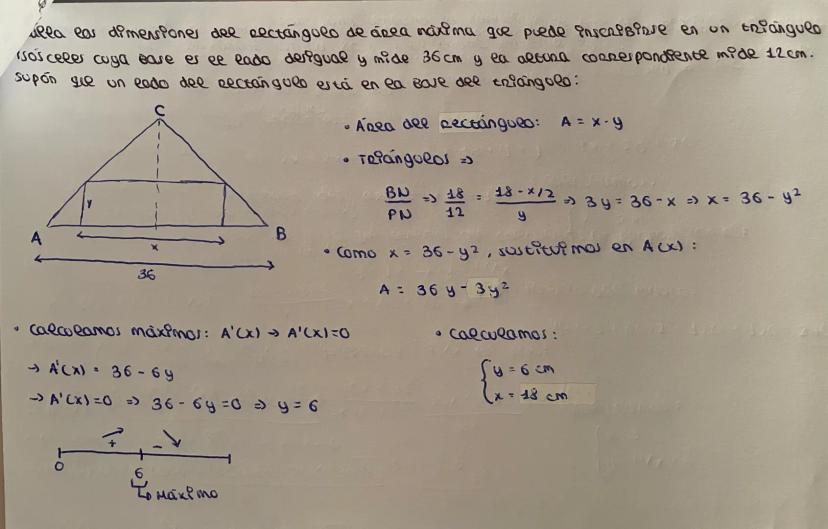 las dimensiones del rectángulo de área máxima que puede inscribirse en un triángulo
isósceles cuya base es el lado desigual y mide 36 cm y la altura correspondiente mide 12 cm.
Supón que un lado del rectángulo está en la base del triángulo:
C
• Área del rectángulo: A = x · y
• Triángulos ⇒
BN/PN ⇒ 18/12 = (18 - x/2)/y ⇒ 3y = 36 - x ⇒ x = 36 - y²
y
A B
x
36
• Como x = 36 - y², sustituimos en A(x):
A = 36y - 3y²
• Calculamos máximos: A'(x) → A'(x) = 0
→ A'(x) = 36 - 6y
→ A'(x) = 0 ⇒ 36 - 6y = 0 ⇒ y = 6
+ -
0 6
Máximo
• Calculamos:
y = 6 cm
x = 18 cm